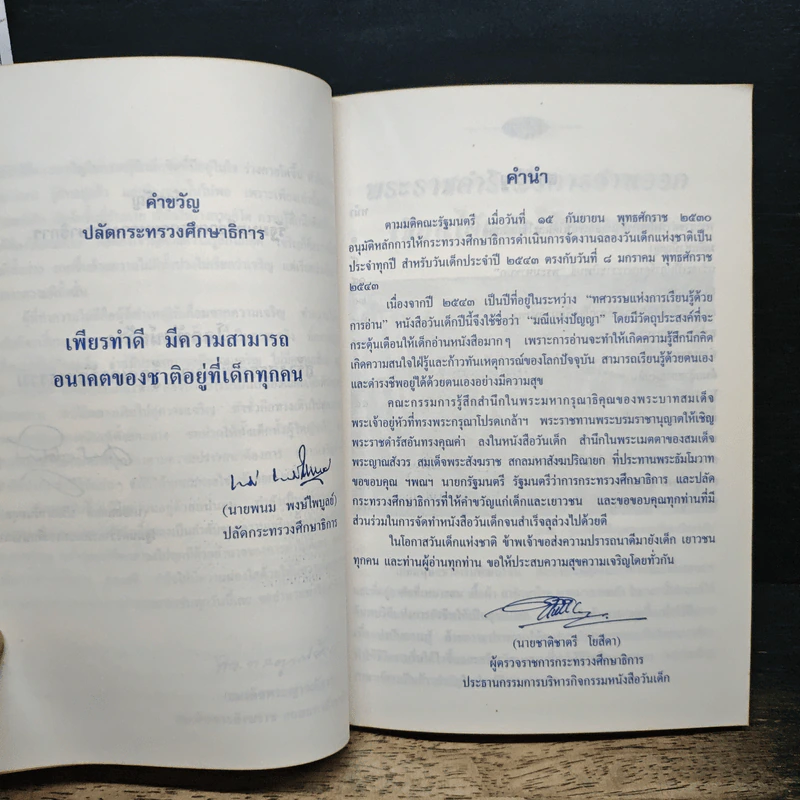 คำขวัญ
ปลัดกระทรวงศึกษาธิการ
เพียรทำดี มีความสามารถ
อนาคตของชาติอยู่ที่เด็กทุกคน
(นายพนม พงษ์ไพบูลย์)
ปลัดกระทรวงศึกษาธิการ
คำนำ
ตามมติคณะรัฐมนตรี เมื่อวันที่ ๑๕ กันยายน พุทธศักราช ๒๕๓๐
อนุมัติหลักการให้กระทรวงศึกษาธิการดำเนินการจัดงานฉลองวันเด็กแห่งชาติเป็น
ประจำทุกปี สำหรับวันเด็กประจำปี ๒๕๔๓ ตรงกับวันที่ ๘ มกราคม พุทธศักราช
๒๕๔๓
เนื่องจากปี ๒๕๔๓ เป็นปีที่อยู่ในระหว่าง "ทศวรรษแห่งการเรียนรู้ด้วย
การอ่าน" หนังสือวันเด็กปีนี้จึงใช้ชื่อว่า "มณีแห่งปัญญา" โดยมีวัตถุประสงค์ที่จะ
กระตุ้นเตือนให้เด็กอ่านหนังสือมาก ๆ เพราะการอ่านจะทำให้เกิดความรู้สึกนึกคิด
เกิดความสนใจใฝ่รู้และก้าวทันเหตุการณ์ของโลกปัจจุบัน สามารถเรียนรู้ด้วยตนเอง
และดำรงชีพอยู่ได้ด้วยตนเองอย่างมีความสุข
คณะกรรมการรู้สึกสำนึกในพระมหากรุณาธิคุณของพระบาทสมเด็จ
พระเจ้าอยู่หัวที่ทรงพระกรุณาโปรดเกล้าฯ พระราชทานพระบรมราชานุญาตให้เชิญ
พระราชดำรัสอันทรงคุณค่า ลงในหนังสือวันเด็ก สำนึกในพระเมตตาของสมเด็จ
พระญาณสังวร สมเด็จพระสังฆราช สกลมหาสังฆปริณายก ที่ประทานพระธัมโมวาท
ขอขอบคุณ ฯพณฯ นายกรัฐมนตรี รัฐมนตรีว่าการกระทรวงศึกษาธิการ และปลัด
กระทรวงศึกษาธิการที่ให้คำขวัญแก่เด็กและเยาวชน และขอขอบคุณทุกท่านที่มี
ส่วนร่วมในการจัดทำหนังสือวันเด็กจนสำเร็จลุล่วงไปด้วยดี
ในโอกาสวันเด็กแห่งชาติ ข้าพเจ้าขอส่งความปรารถนาดีมายังเด็ก เยาวชน
ทุกคน และท่านผู้อ่านทุกท่าน ขอให้ประสบความสุขความเจริญโดยทั่วกัน
(นายชาติชาตรี โยสีดา)
ผู้ตรวจราชการกระทรวงศึกษาธิการ
ประธานกรรมการบริหารกิจกรรมหนังสือวันเด็ก